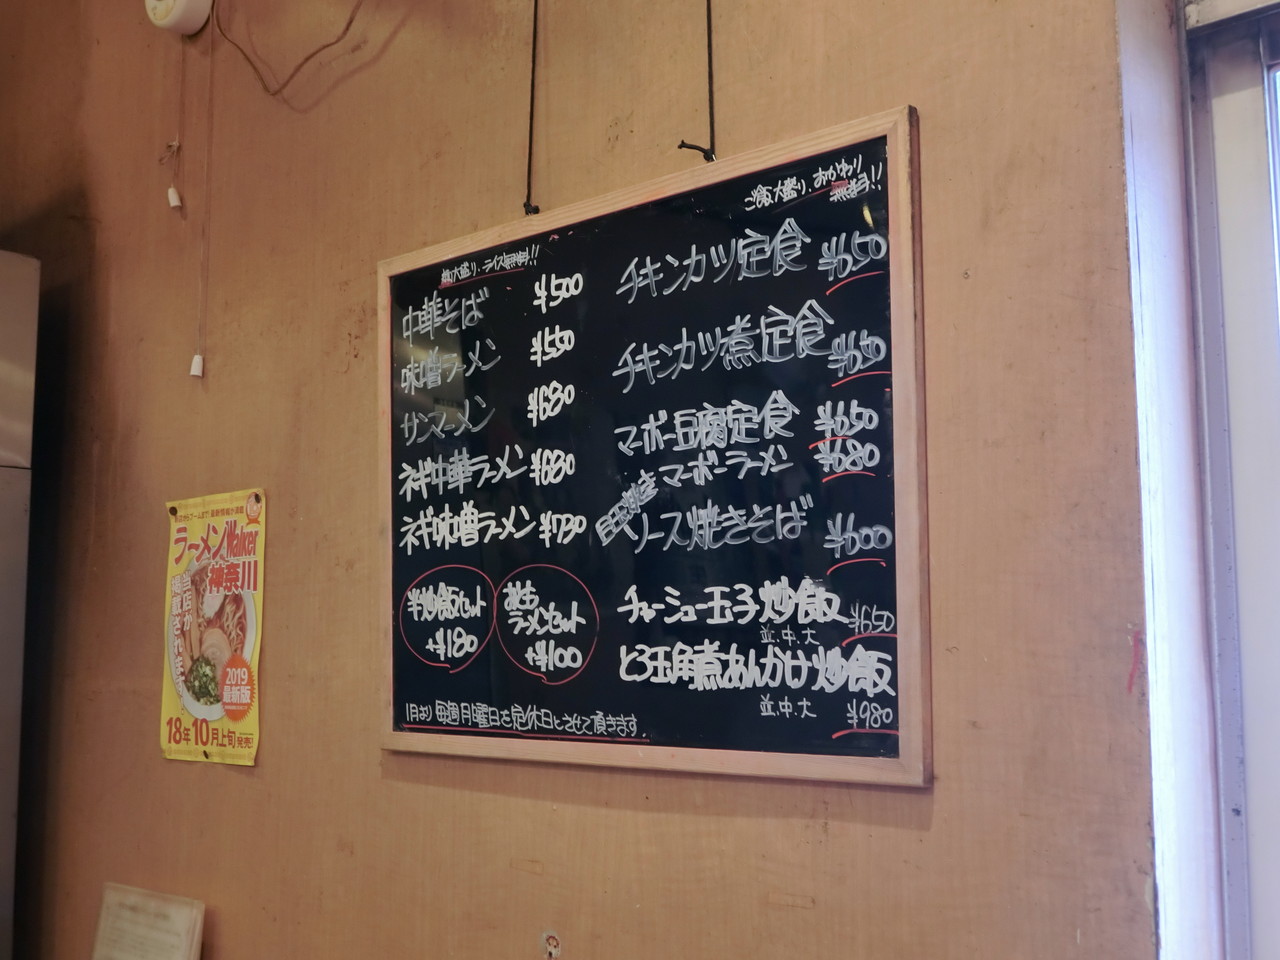 麺大盛り、ライス無料!!
中華そば ¥500
味噌ラーメン ¥550
サンマーメン ¥680
ネギ中華ラーメン ¥680
ネギ味噌ラーメン ¥730
半炒飯セット
+¥180
ラーメンセット
+¥100
1月より毎週月曜日を定休日とさせて頂きます。
ご飯大盛り、おかわり
無料!!
チキンカツ定食 ¥650
チキンカツ煮定食 ¥650
マーボー豆腐定食 ¥650
マーボーラーメン ¥680
目玉焼き
ソース焼きそば ¥600
チャーシュー玉子炒飯 ¥650
並.中.大
とろ玉角煮あんかけ炒飯
並.中.大 ¥980
ラーメンWalker
神奈川
当店が
掲載されます
2019
最新版
18年10月上旬発売!